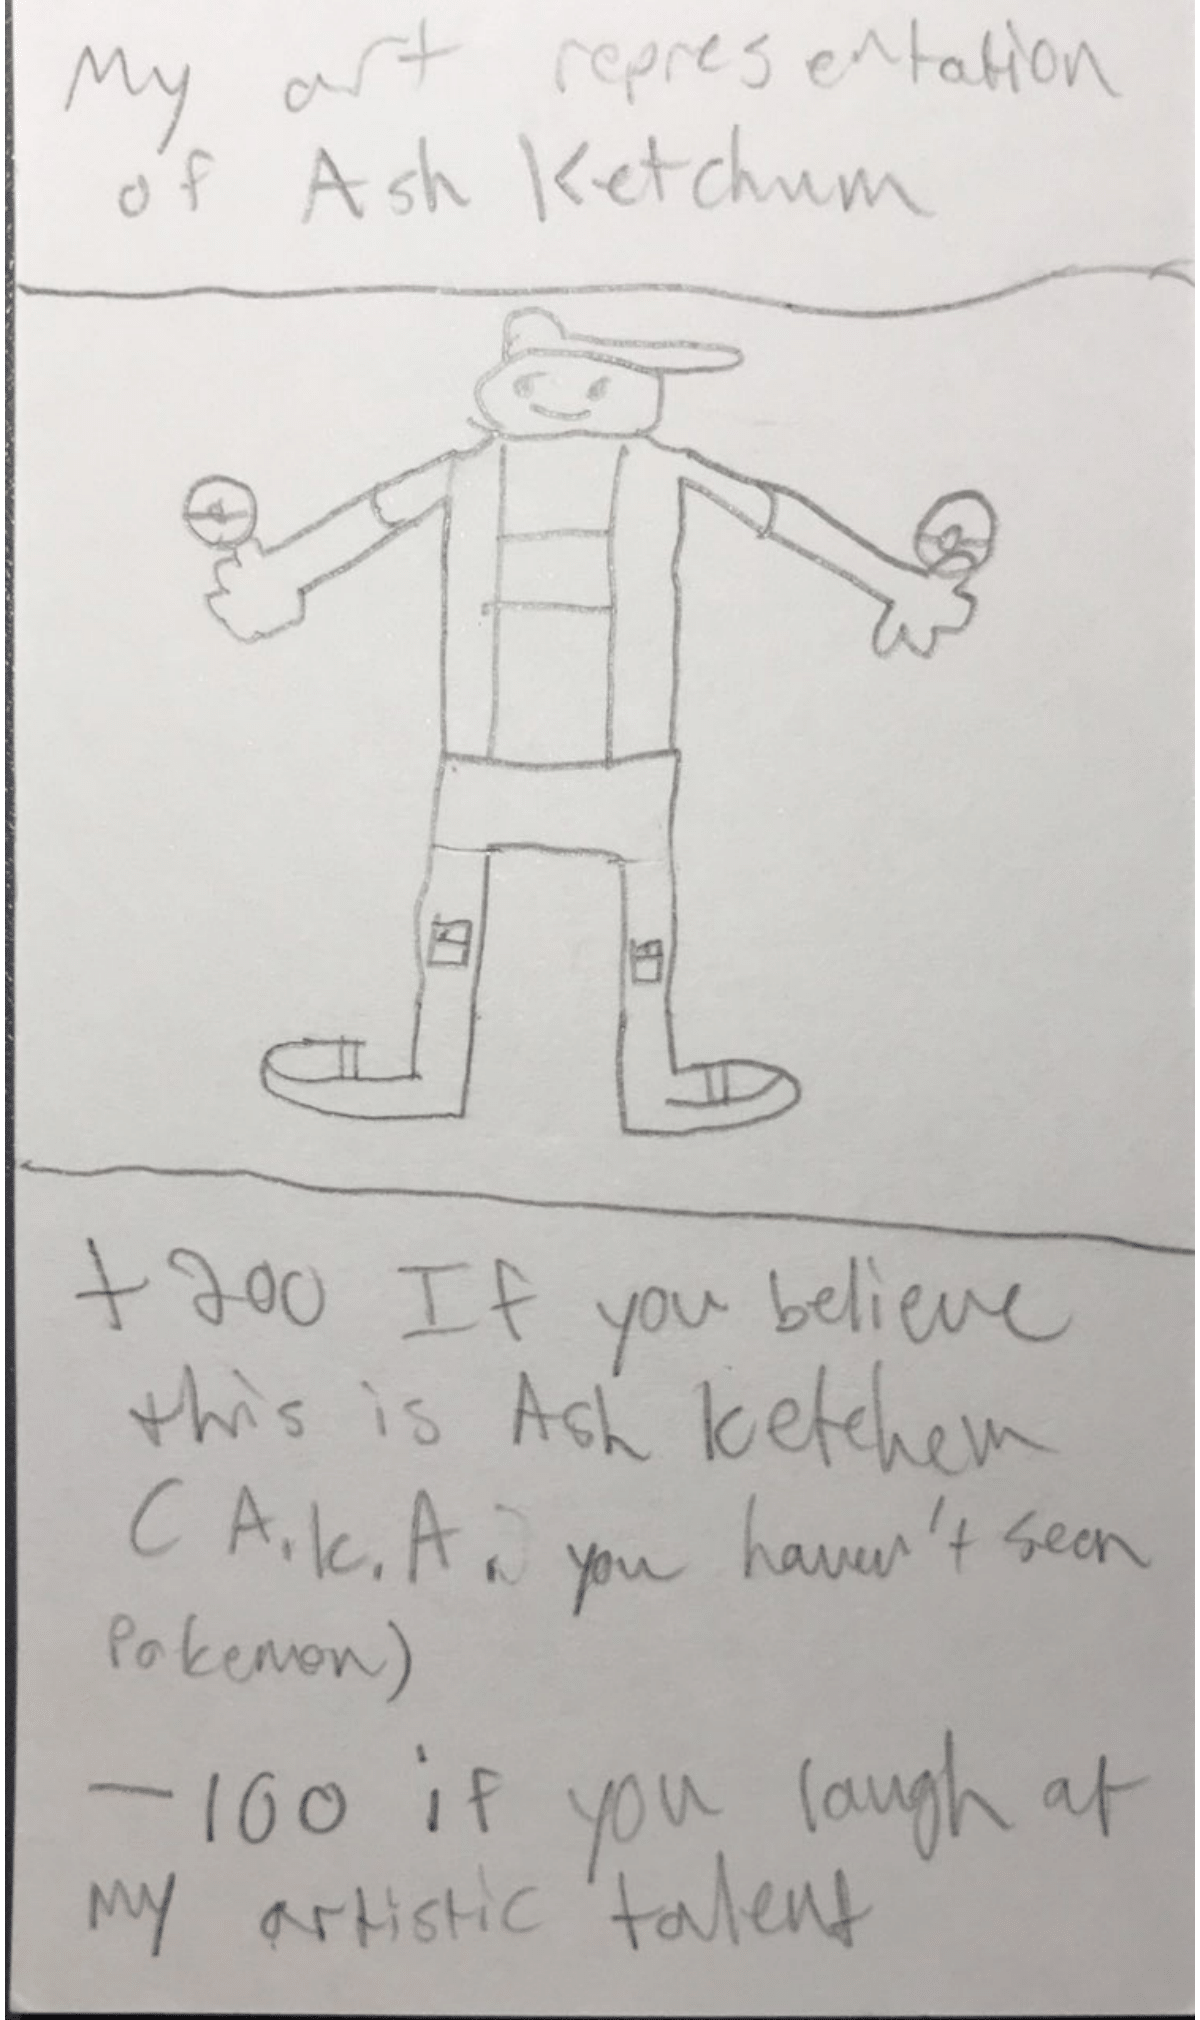 My art representation
of Ash Ketchum
+200 If you believe
this is Ash Ketchem
(A.K.A. you haven't seen
Pokemon)
-100 if you laugh at
my artistic talent